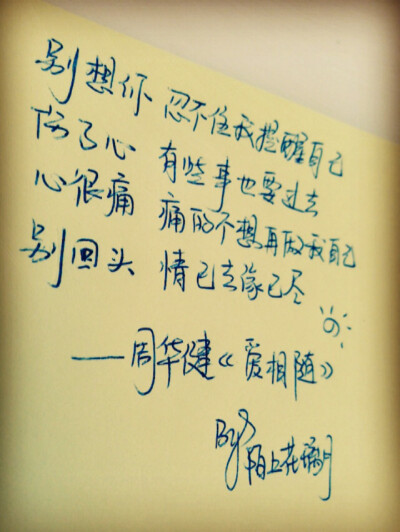 别想你 忍不住我提醒自己
伤了心 有些事也要过去
心很痛 痛的不想再做我自己
别回头 情已去缘已尽
——周华健《爱相随》
By 陌上花嫡